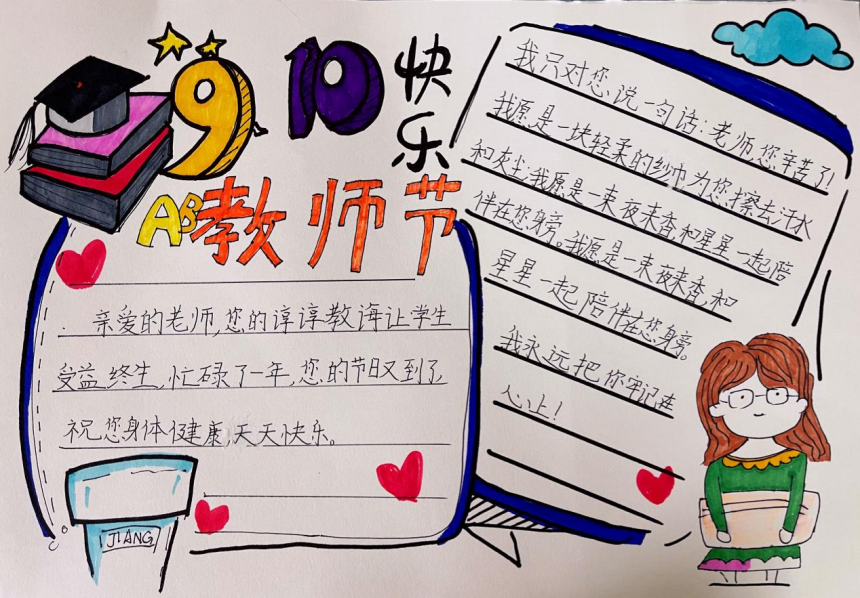 9 10 快乐
AB教师节
亲爱的老师,您的谆谆教诲让学生
受益终生,忙碌了一年,您的节日又到了,
祝您身体健康,天天快乐。
JIANG
我只对您说一句话:老师,您辛苦了!
我愿是一块轻柔的纱巾为您擦去汗水
和灰尘;我愿是一束夜来香,和星星一起陪
伴在您身旁。我愿是一束夜来香,和
星星一起陪伴在您身旁。
我永远把你牢记在
心上!